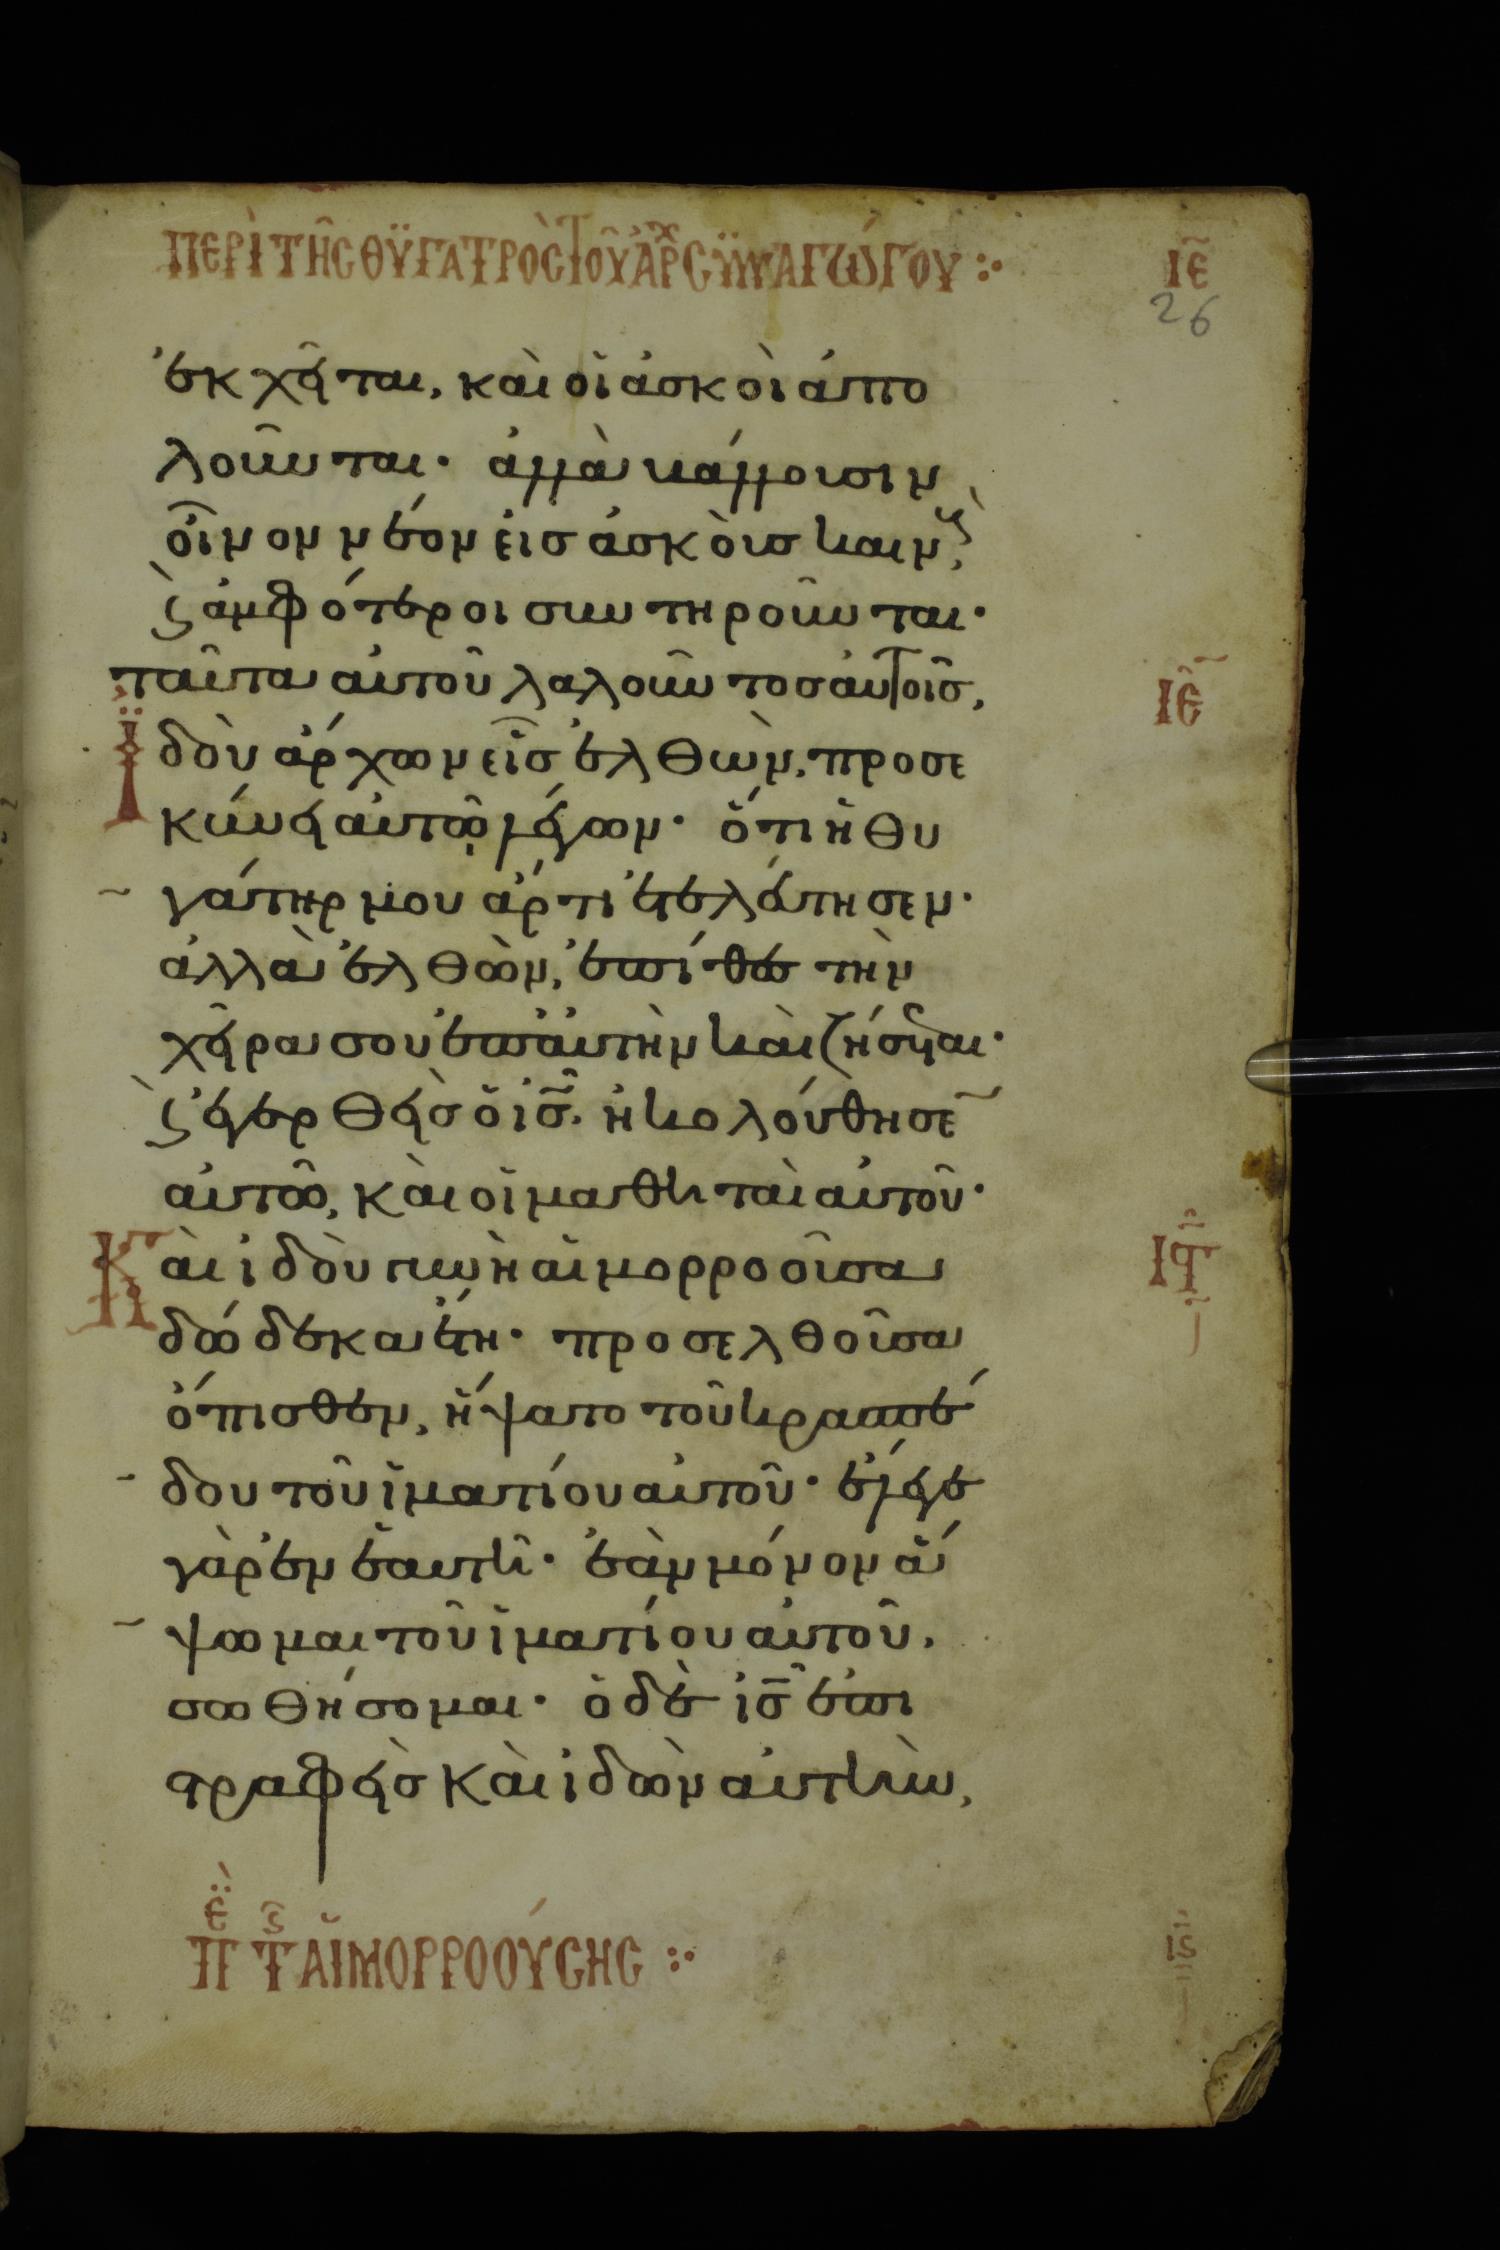 ΠΕΡῚ ΤΗ͂Ϲ ΘΫΓΑΤΡῸϹ ΤΟΥ͂ ἈΡΧ ϹΫΝΑΓΩΓΟΥ :· ΙΕ
26
ἐκχεῖται, καὶ οἱ ἀσκοὶ ἀπο
λοῦνται· ἀλλὰ βάλλουσιν
οἶνον νέον εἰσ ἀσκοὺσ καιν,
ϗ ἀμφότεροι συντηροῦνται·
ταῦτα αὐτοῦ λαλοῦντοσ αὐτοῖσ, ΙΕ
Ϊδοὺ ἄρχων εἷσ ἐλθὼν, προσε
κύνει αὐτῶ λέγων· ὅτι ἡ θυ
γάτηρ μου ἄρτι ἐτελεύτησεν·
ἀλλὰ ἐλθὼν, ἐπίθεσ τὴν
χεῖρα σου ἐπ' αὐτὴν καὶ ζήσεται·
ϗ ἐγερθεὶσ ὁ ἰσ̅. ἠκολούθησε
αὐτῶ, καὶ οἱ μαθηταὶ αὐτοῦ·
Καὶ ἰδοὺ γυνὴ αἱμορροοῦσα ΙϚ
δώδεκα ἔτη· προσελθοῦσα
ὄπισθεν, ἥψατο τοῦ κρασπέ
δου τοῦ ἱματίου αὐτοῦ· ἔλεγε
γὰρ ἐν ἑαυτῆ· ἐὰν μόνον ἅ
ψωμαι τοῦ ἱματίου αὐτοῦ,
σωθήσομαι· ὁ δὲ ἰσ̅ ἐπι
στραφεὶσ καὶ ἰδὼν αὐτὴν,
ΠΕ ΤϹ ΑἹΜΟΡΡΟΟΎϹΗϹ :· ΙϚ